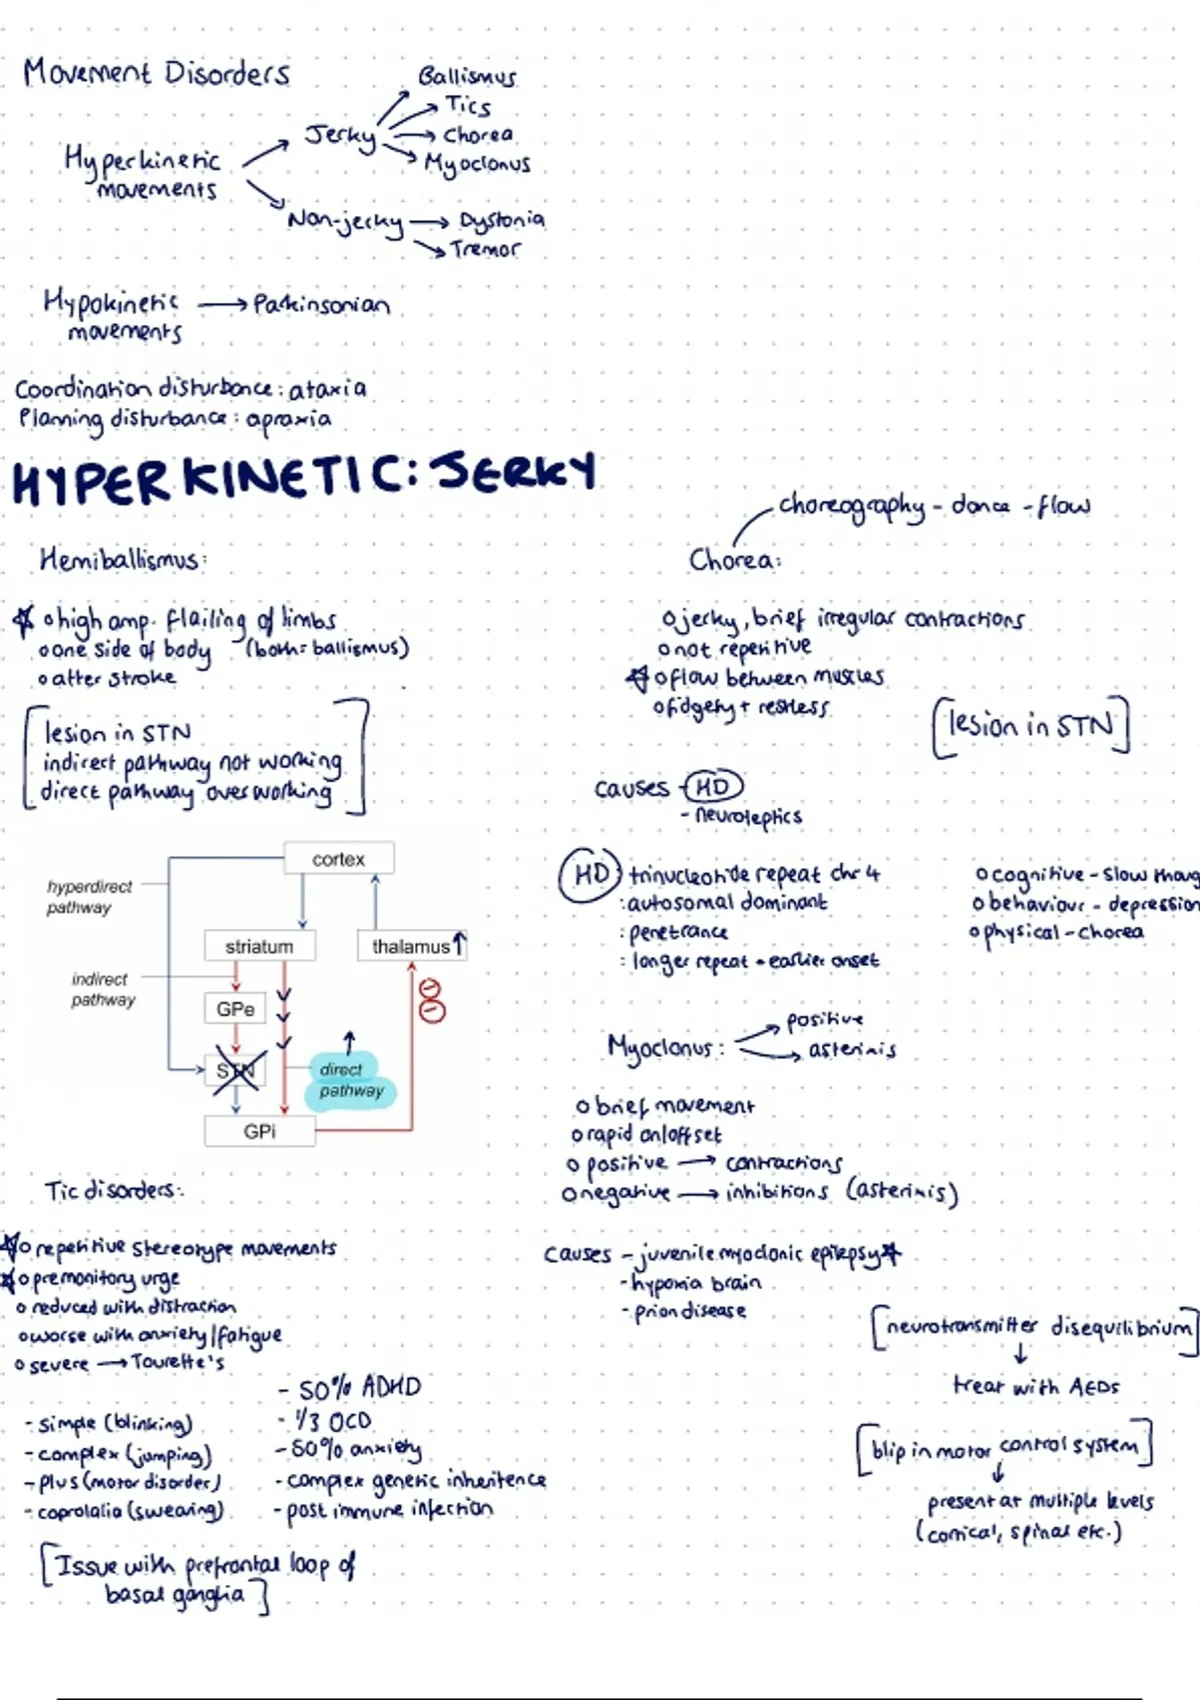 Movement Disorders
Hyperkinetic
movements
Jerky
Ballismus
Tics
Chorea
Myoclonus
Non-jerky
Dystonia
Tremor
Hypokinetic → Parkinsonian
movements
Coordination disturbance: ataxia
Planning disturbance: apraxia
HYPERKINETIC: JERKY
Hemiballismus:
☆ o high amp. flailing of limbs
o one side of body (both = ballismus)
o after stroke
[lesion in STN
indirect pathway not working
direct pathway overworking]
cortex
hyperdirect
pathway
striatum
thalamus ↑
indirect
pathway
GPe
STN
direct
pathway
GPi
Tic disorders:
☆ o repetitive stereotype movements
☆ o premonitory urge
o reduced with distraction
o worse with anxiety/fatigue
o severe → Tourette's
- simple (blinking)
- complex (jumping)
- plus (motor disorder)
- coprolalia (swearing)
- 50% ADHD
- 1/3 OCD
- 50% anxiety
- complex genetic inheritence
- post immune infection
[Issue with prefrontal loop of
basal ganglia]
choreography - dance - flow
Chorea:
o jerky, brief irregular contractions
o not repetitive
☆ o flow between muscles
o fidgety + restless
[lesion in STN]
causes - HD
- neuroleptics
HD : trinucleotide repeat chr 4
: autosomal dominant
: penetrance
: longer repeat = earlier onset
o cognitive - slow thoug
o behaviour - depression
o physical - chorea
Myoclonus:
positive
asterixis
o brief movement
o rapid on/offset
o positive → contractions
o negative → inhibitions (asterixis)
causes - juvenile myoclonic epilepsy ☆
- hypoxia brain
- prion disease
[neurotransmitter disequilibrium]
↓
treat with AEDs
[blip in motor control system]
↓
present at multiple levels
(cortical, spinal etc.)